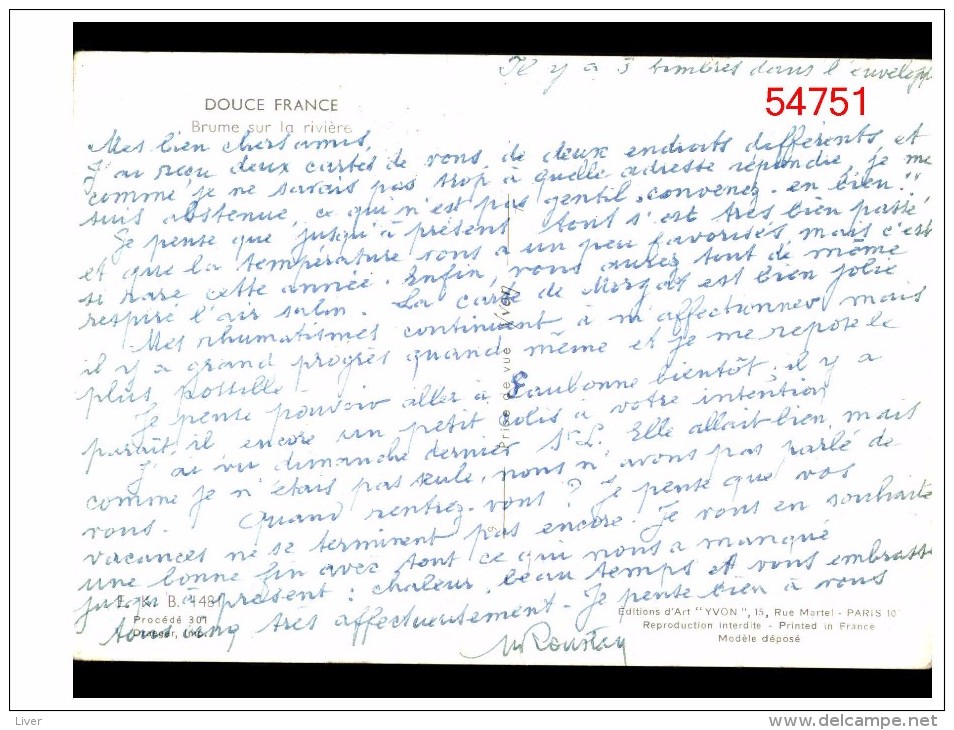 Il y a 3 timbres dans l'envelopp
54751
DOUCE FRANCE
Brume sur la rivière
Mes bien chers amis,
J'ai reçu deux cartes de vous, de deux endroits différents, et
comme je ne savais pas trop à quelle adresse répondre, je me
suis abstenue, ce qui n'est pas gentil, convenez-en bien !!
Je pense que jusqu'à présent tout s'est très bien passé
et que la température vous a un peu favorisés mais c'est
si rare cette année. Enfin, vous aurez tout de même
respiré l'air salin. La carte de Morgat est bien jolie
Mes rhumatismes continuent à m'affectionner mais
il y a grand progrès quand même et je me repose le
plus possible
Je pense pouvoir aller à Eaubonne bientôt, il y a
parait-il encore un petit colis à votre intention
J'ai vu dimanche dernier Elle allait bien, mais
comme je n'étais pas seule, nous n'avons pas parlé de
vous. Quand rentrez-vous ? Je pense que vos
vacances ne se terminent pas encore. Je vous en souhaite
une bonne fin avec tout ce qui nous a manqué
jusqu'à présent : chaleur, beau temps et vous embrasse
tous cinq très affectueusement. Je pense bien à vous
M Roustan
Prise de vue Yvon
E. K. B. 1481
Procédé 301
Draeger, Imp.
Editions d'Art "YVON", 15, Rue Martel - PARIS 10
Reproduction interdite - Printed in France
Modèle déposé
Liver
www.delcampe.net